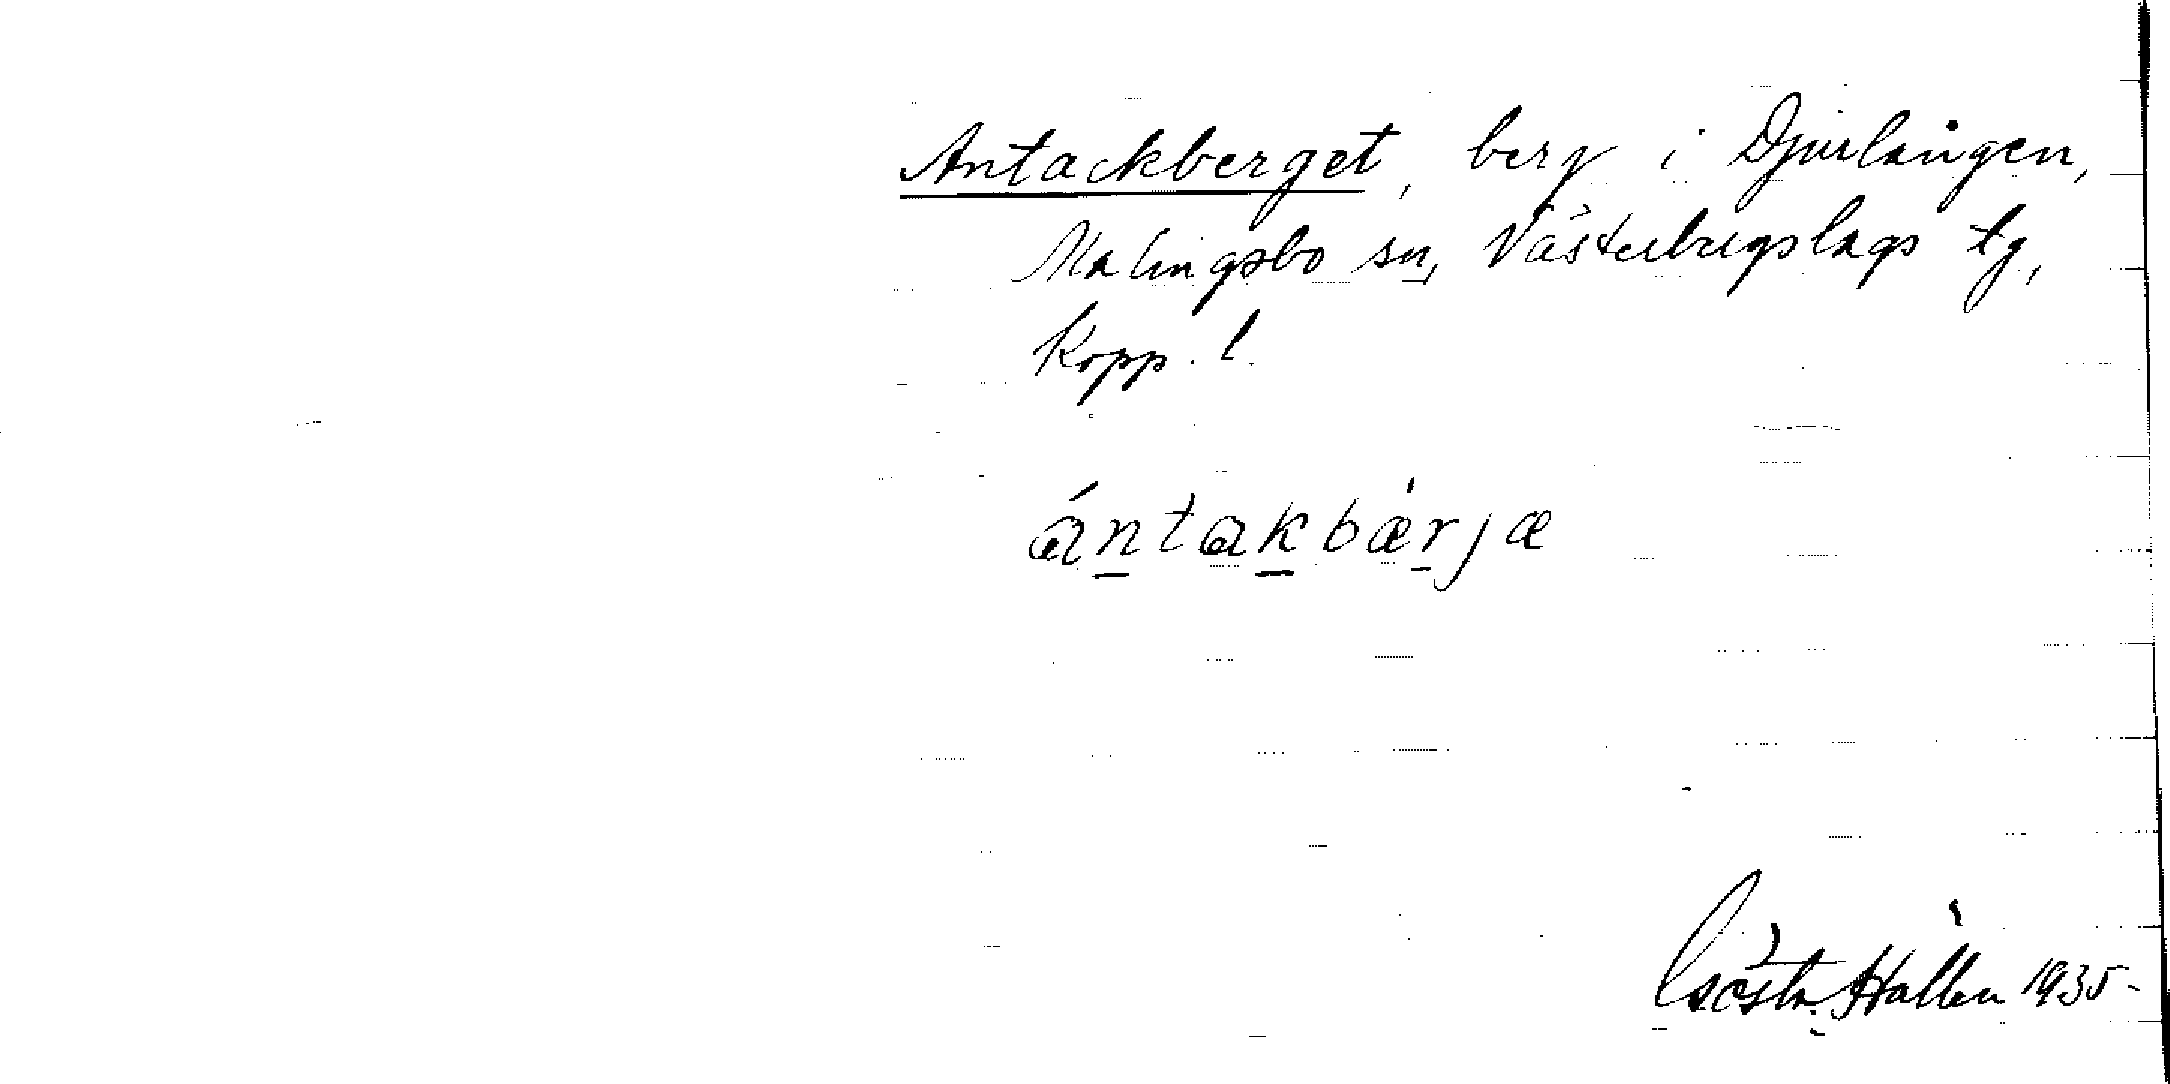 Antackberget, berg i Djurlången,
Malingsbo sn, Västerbergslags tg,
Kopp. l.
ántakbæ̀rjæ
Gösta Hallén 1935